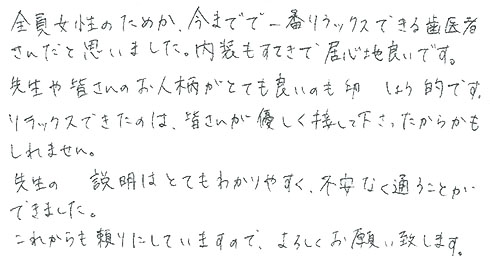 全員女性のためか、今までで一番リラックスできる歯医者
さんだと思いました。内装もすてきで居心地良いです。
先生や皆さんのお人柄がとても良いのも印 しょう的です。
リラックスできたのは、皆さんが優しく接して下さったからかも
しれません。
先生の 説明はとてもわかりやすく、不安なく通うことが
できました。
これからも頼りにしていますので、よろしくお願い致します。